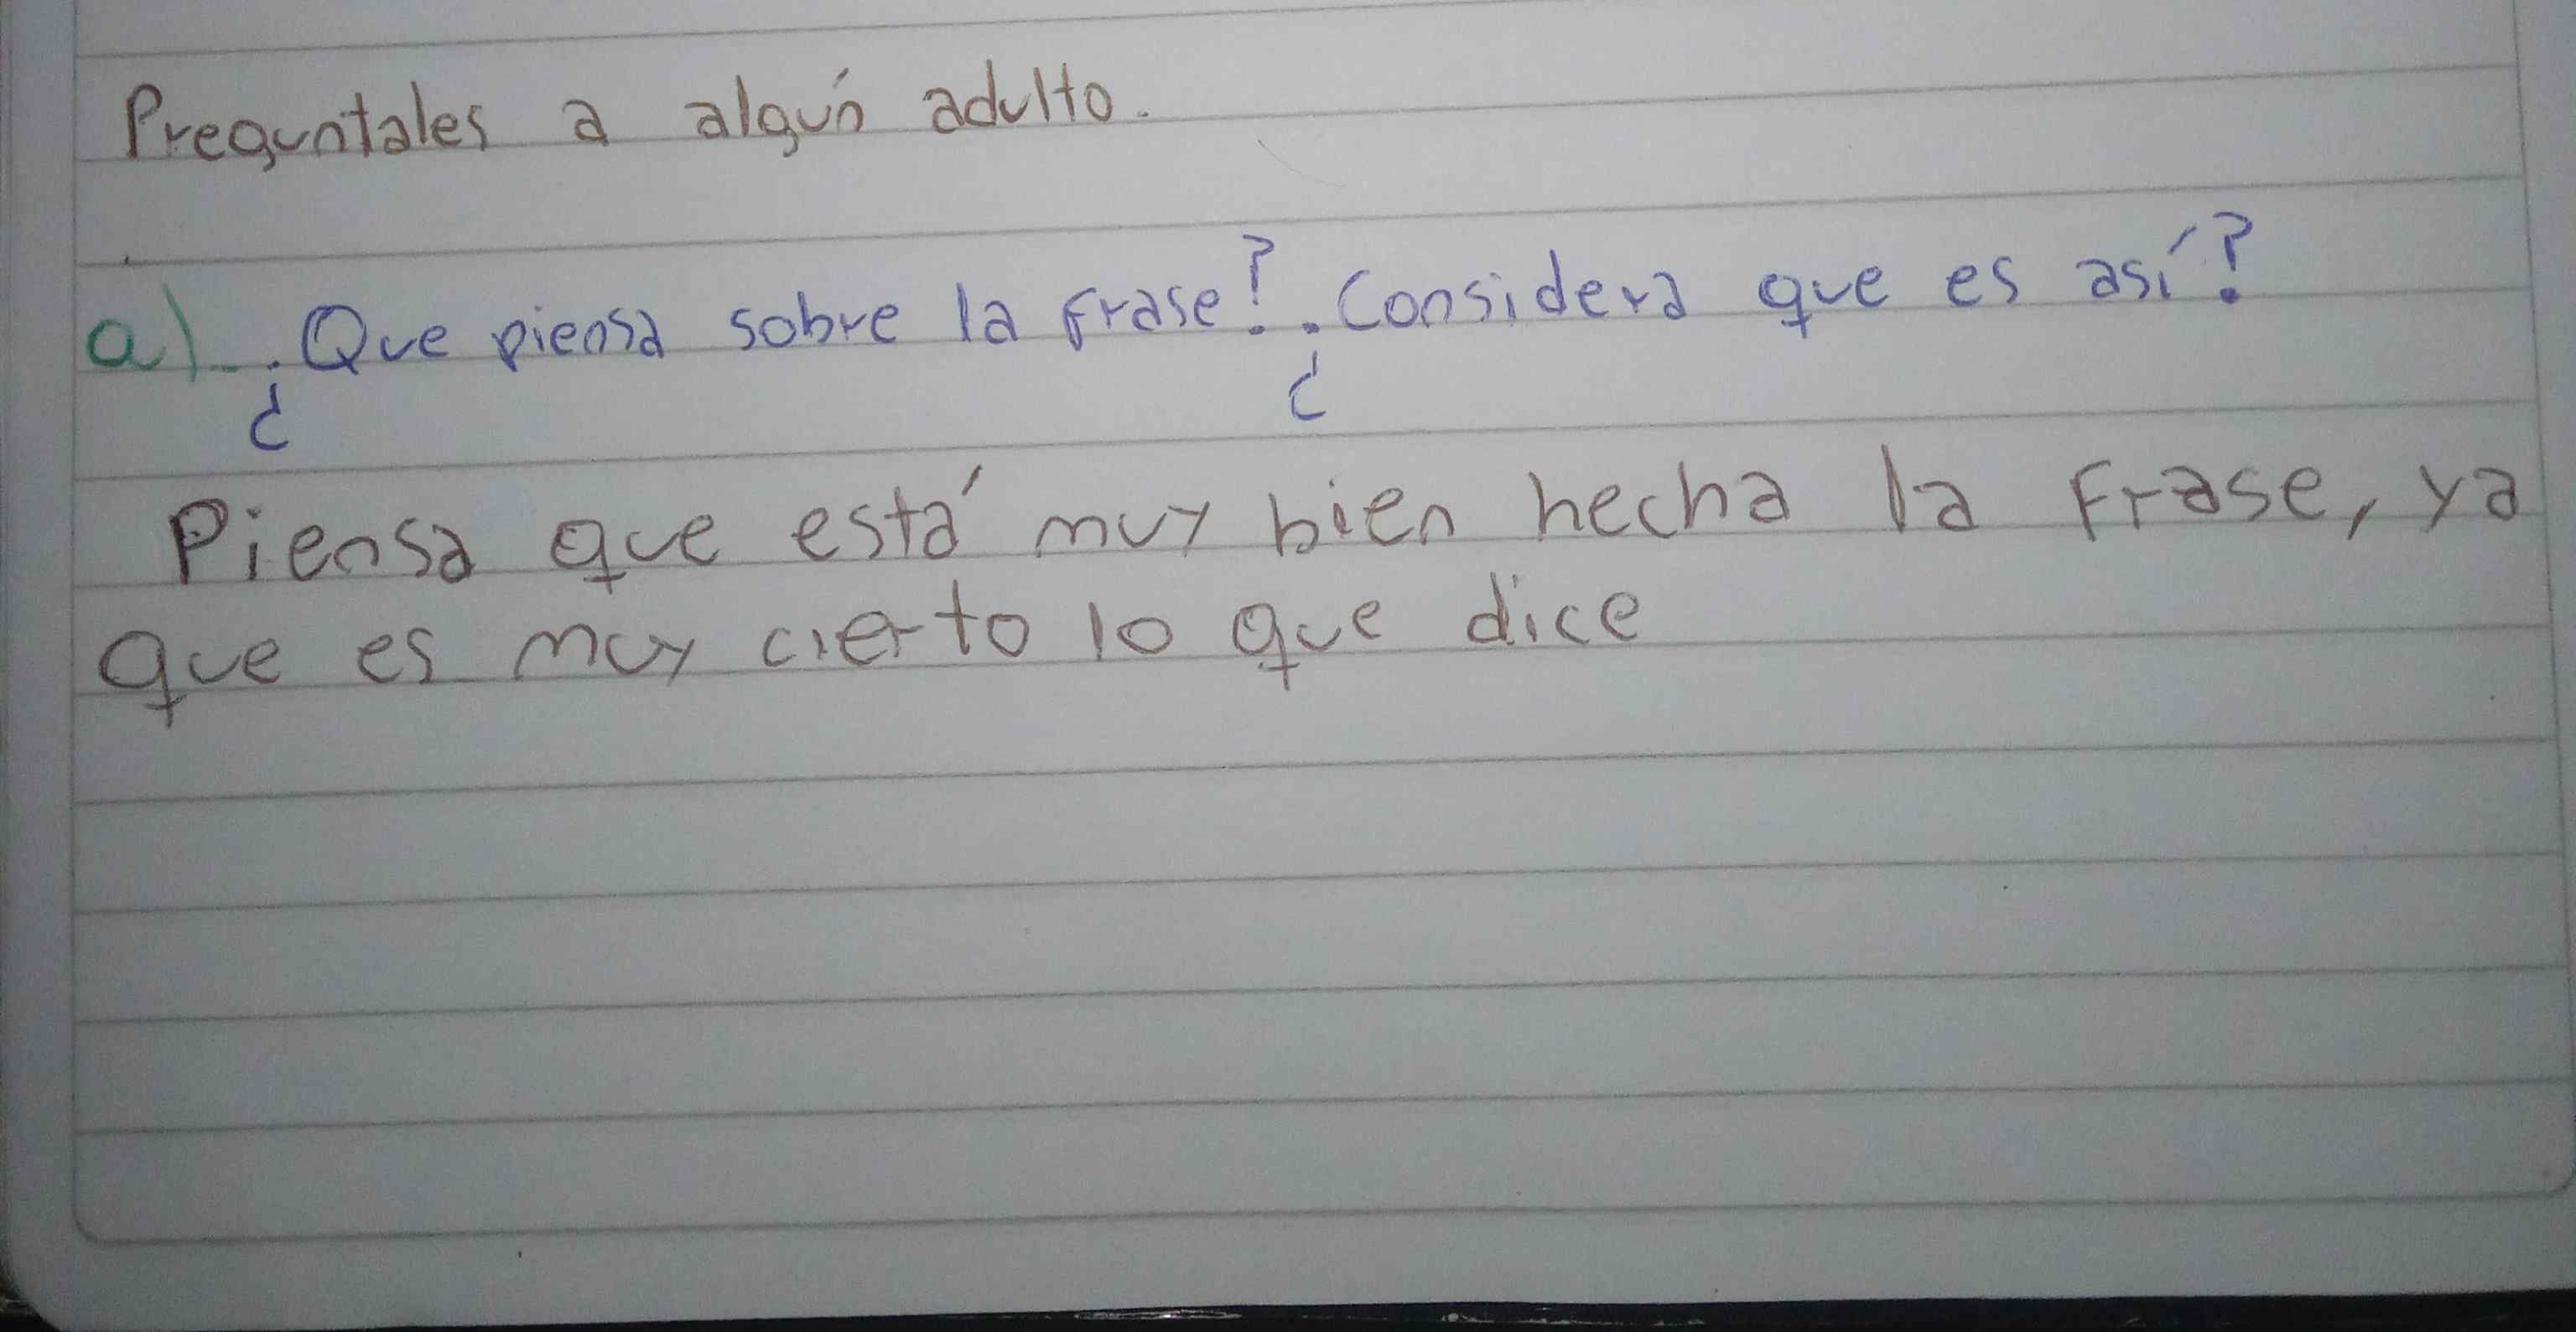 Preguntales a algún adulto.
a)_ ¿Que piensa sobre la frase? ¿Considera que es así?
Piensa que está muy bien hecha la frase, ya
que es muy cierto lo que dice